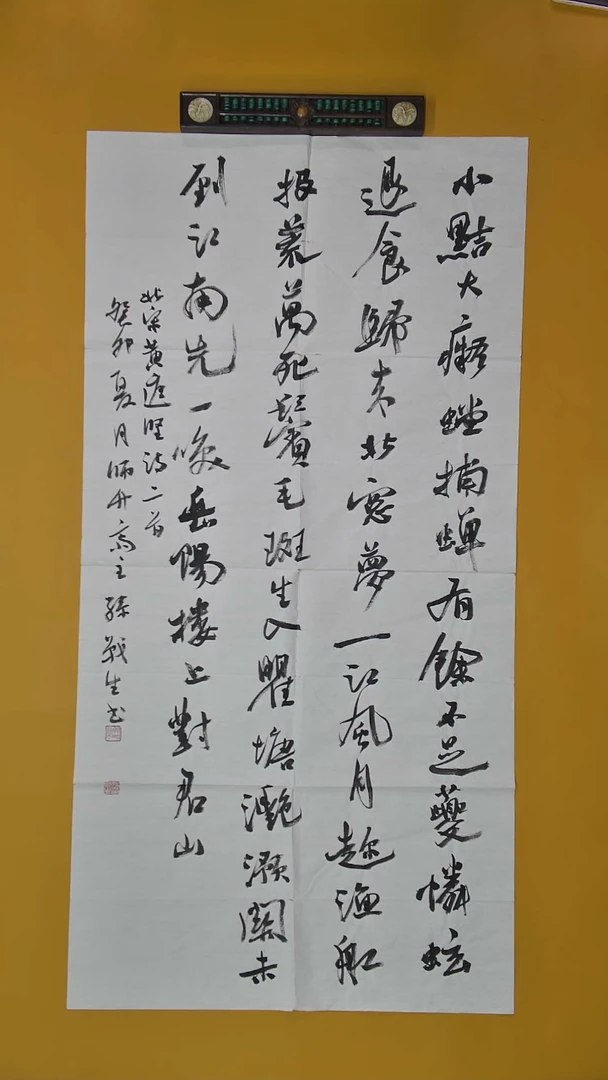 小黠大癡螳捕蟬有餘不足夔憐蚿
退食歸來北窓夢一江風月趁漁船
投荒萬死鬢毛斑生入瞿塘灩澦關未
到江南先一咲岳陽樓上對君山
北宋黃庭堅詩二首
癸卯夏月師竹齋主孫戰生書